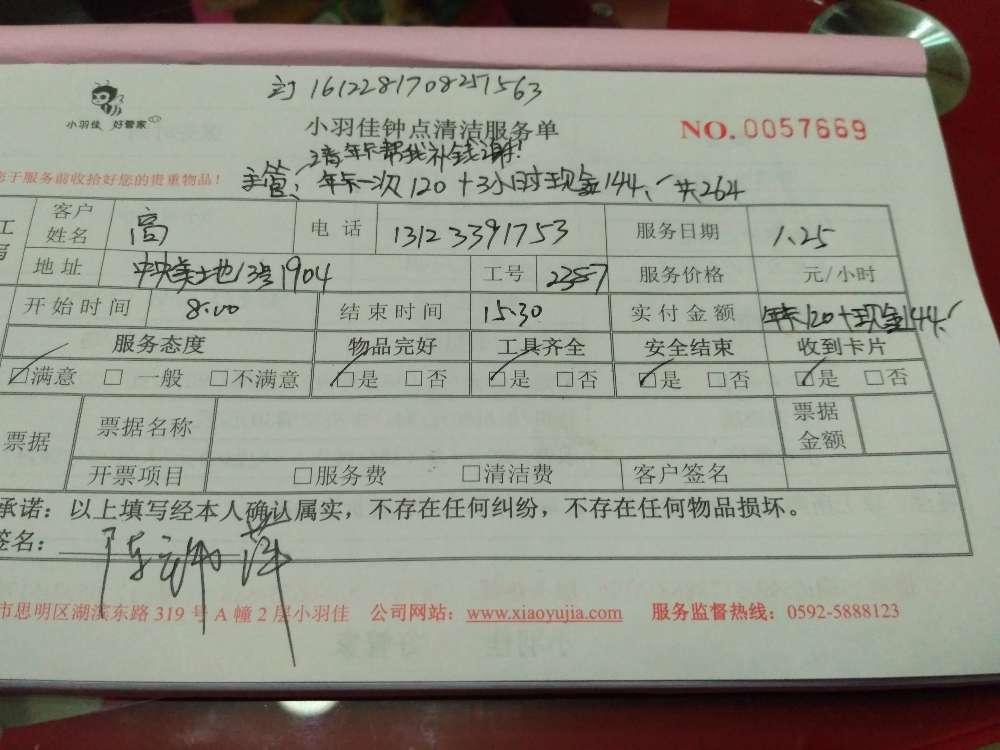 订 1612281708251563
小羽佳 好管家
小羽佳钟点清洁服务单
NO. 0057669
请年卡帮我补钱谢!
于服务前收拾好您的贵重物品!
主管: 年卡一次120+3小时现金144、共264
客户姓名 高 电话 13123391753 服务日期 1.25
地址 中央美地13号1904 工号 2387 服务价格 元/小时
开始时间 8:00 结束时间 15:30 实付金额 年卡120+现金144、
服务态度 物品完好 工具齐全 安全结束 收到卡片
☑满意 □一般 □不满意 ☑是 □否 ☑是 □否 ☑是 □否 ☑是 □否
票据 票据名称 票据金额
开票项目 □服务费 □清洁费 客户签名
承诺:以上填写经本人确认属实,不存在任何纠纷,不存在任何物品损坏。
签名:
市思明区湖滨东路 319 号 A 幢 2 层小羽佳 公司网站:www.xiaoyujia.com 服务监督热线:0592-5888123